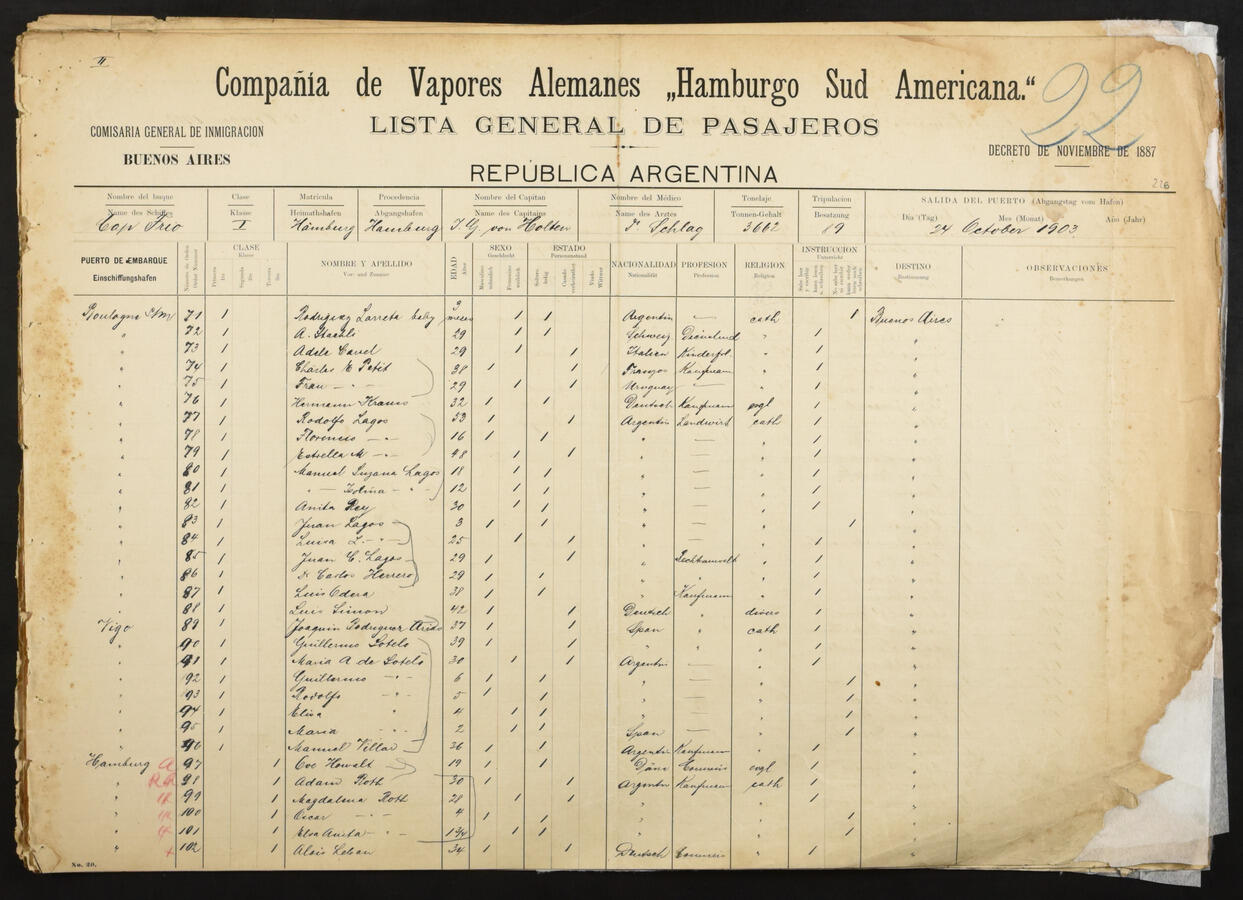 II
Compañía de Vapores Alemanes „Hamburgo Sud Americana.“
22
LISTA GENERAL DE PASAJEROS
COMISARIA GENERAL DE INMIGRACION
BUENOS AIRES
DECRETO DE NOVIEMBRE DE 1887
REPÚBLICA ARGENTINA
226
Nombre del buque Clase Matricula Procedencia Nombre del Capitan Nombre del Médico Tonelaje Tripulacion SALIDA DEL PUERTO (Abgangstag vom Hafen)
Name des Schiffes Klasse Heimathshafen Abgangshafen Name des Capitains Name des Arztes Tonnen-Gehalt Besatzung Dia (Tag) Mes (Monat) Año (Jahr)
Cap Frio I Hamburg Hamburg von Holten Schlag 3662 89 24 October 1903.
PUERTO DE EMBARQUE CLASE NOMBRE Y APELLIDO EDAD SEXO ESTADO NACIONALIDAD PROFESION RELIGION INSTRUCCION DESTINO OBSERVACIONES
Einschiffungshafen Klasse Vor- und Zuname Alter Geschlecht Personenstand Nationalität Profession Religion Unterricht Bestimmung Bemerkungen
Boulogne s/m 71 1 Rodriguez Larreta baby 9 meses 1 1 Argentin — cath 1 Buenos Aires
" 72 1 A. Staehli 29 1 1 Schweiz " 1 "
" 73 1 Adele 29 1 1 Italien Kinderfrl. " 1 "
" 74 1 Charles E Petit 38 1 1 Franzos Kaufmann " 1 "
" 75 1 Frau — " — 29 1 1 Uruguay — " 1 "
" 76 1 Hermann Kraus 32 1 1 Deutsch Kaufmann evgl 1 "
" 77 1 Rodolfo Lagos 53 1 1 Argentin Landwirt cath 1 "
" 78 1 Florencio — " — 16 1 1 " — " 1 "
" 79 1 Estrella M — " — 48 1 1 " — " 1 "
" 80 1 Manuel Suzana Lagos 18 1 1 " — " 1 "
" 81 1 " — " — 12 1 1 " — " 1 "
" 82 1 Anita Rey 30 1 1 " — " 1 "
" 83 1 Juan Lagos 3 1 1 " — " 1 "
" 84 1 Luisa L. — " — 25 1 1 " — " 1 "
" 85 1 Juan C. Lagos 29 1 1 " Rechtsanwalt " 1 "
" 86 1 Dr Carlos Herrera 29 1 1 " " " 1 "
" 87 1 Luis Odera 38 1 1 " Kaufmann " 1 "
" 88 1 Luis Simon 42 1 1 Deutsch " divers 1 "
Vigo 89 1 Joaquin Rodriguez 37 1 1 Span " cath 1 "
" 90 1 Guillermo Sotelo 39 1 1 " " " 1 "
" 91 1 Maria A de Sotelo 30 1 1 Argentin — " 1 "
" 92 1 Guillermo — " — 6 1 1 " — " 1 "
" 93 1 Rodolfo " 5 1 1 " — " 1 "
" 94 1 Elisa " 4 1 1 " — " 1 "
" 95 1 Maria — " — 2 1 1 Span — " 1 "
" 96 1 Manuel Villar 36 1 1 Argentin Kaufmann " 1 "
Hamburg 97 1 Ove Howalt 19 1 1 Däne Commis evgl 1 "
" 98 1 Adam Roth 30 1 1 Argentin Kaufmann cath 1 "
" 99 1 Magdalena Roth 28 1 1 " " 1 "
" 100 1 Oscar — " — 4 1 1 " " 1 "
" 101 1 Elsa Anita — " — 1 3/4 1 1 " " 1 "
" 102 1 Alois Leban 34 1 1 Deutsch Commis " 1 "
No. 20.